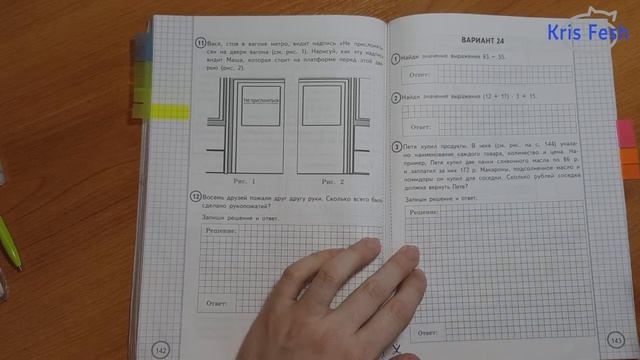 Kris Fesh
11 Вася, стоя в вагоне метро, видит надпись «Не прислонять-
ся» на двери вагона (см. рис. 1). Нарисуй, как эту надпись
видит Маша, которая стоит на платформе перед этой две-
рью (рис. 2).
Не прислоняться
Рис. 1 Рис. 2
12 Восемь друзей пожали друг другу руки. Сколько всего было
сделано рукопожатий?
Запиши решение и ответ.
Решение:
Ответ:
142
ВАРИАНТ 24
1 Найди значение выражения 83 − 55.
Ответ:
2 Найди значение выражения (12 + 17) · 3 + 15.
Ответ:
3 Петя купил продукты. В чеке (см. рис. на с. 144) указа-
но наименование каждого товара, количество и цена. На-
пример, Петя купил две пачки сливочного масла по 86 р.
и заплатил за них 172 р. Макароны, подсолнечное масло и
помидоры он купил для соседки. Сколько рублей соседка
должна вернуть Пете?
Запиши решение и ответ.
Решение:
Ответ:
143